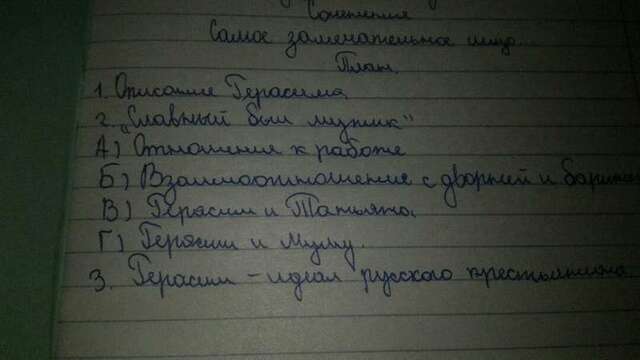 Сочинения
Самое замечательное лицо...
План.
1. Описание Герасима
2. "Славный был мужик"
А) Отношения к работе
Б) Взаимоотношение с дворней и барыней
В) Герасим и Татьяна.
Г) Герасим и Муму.
3. Герасим – идеал русского крестьянина